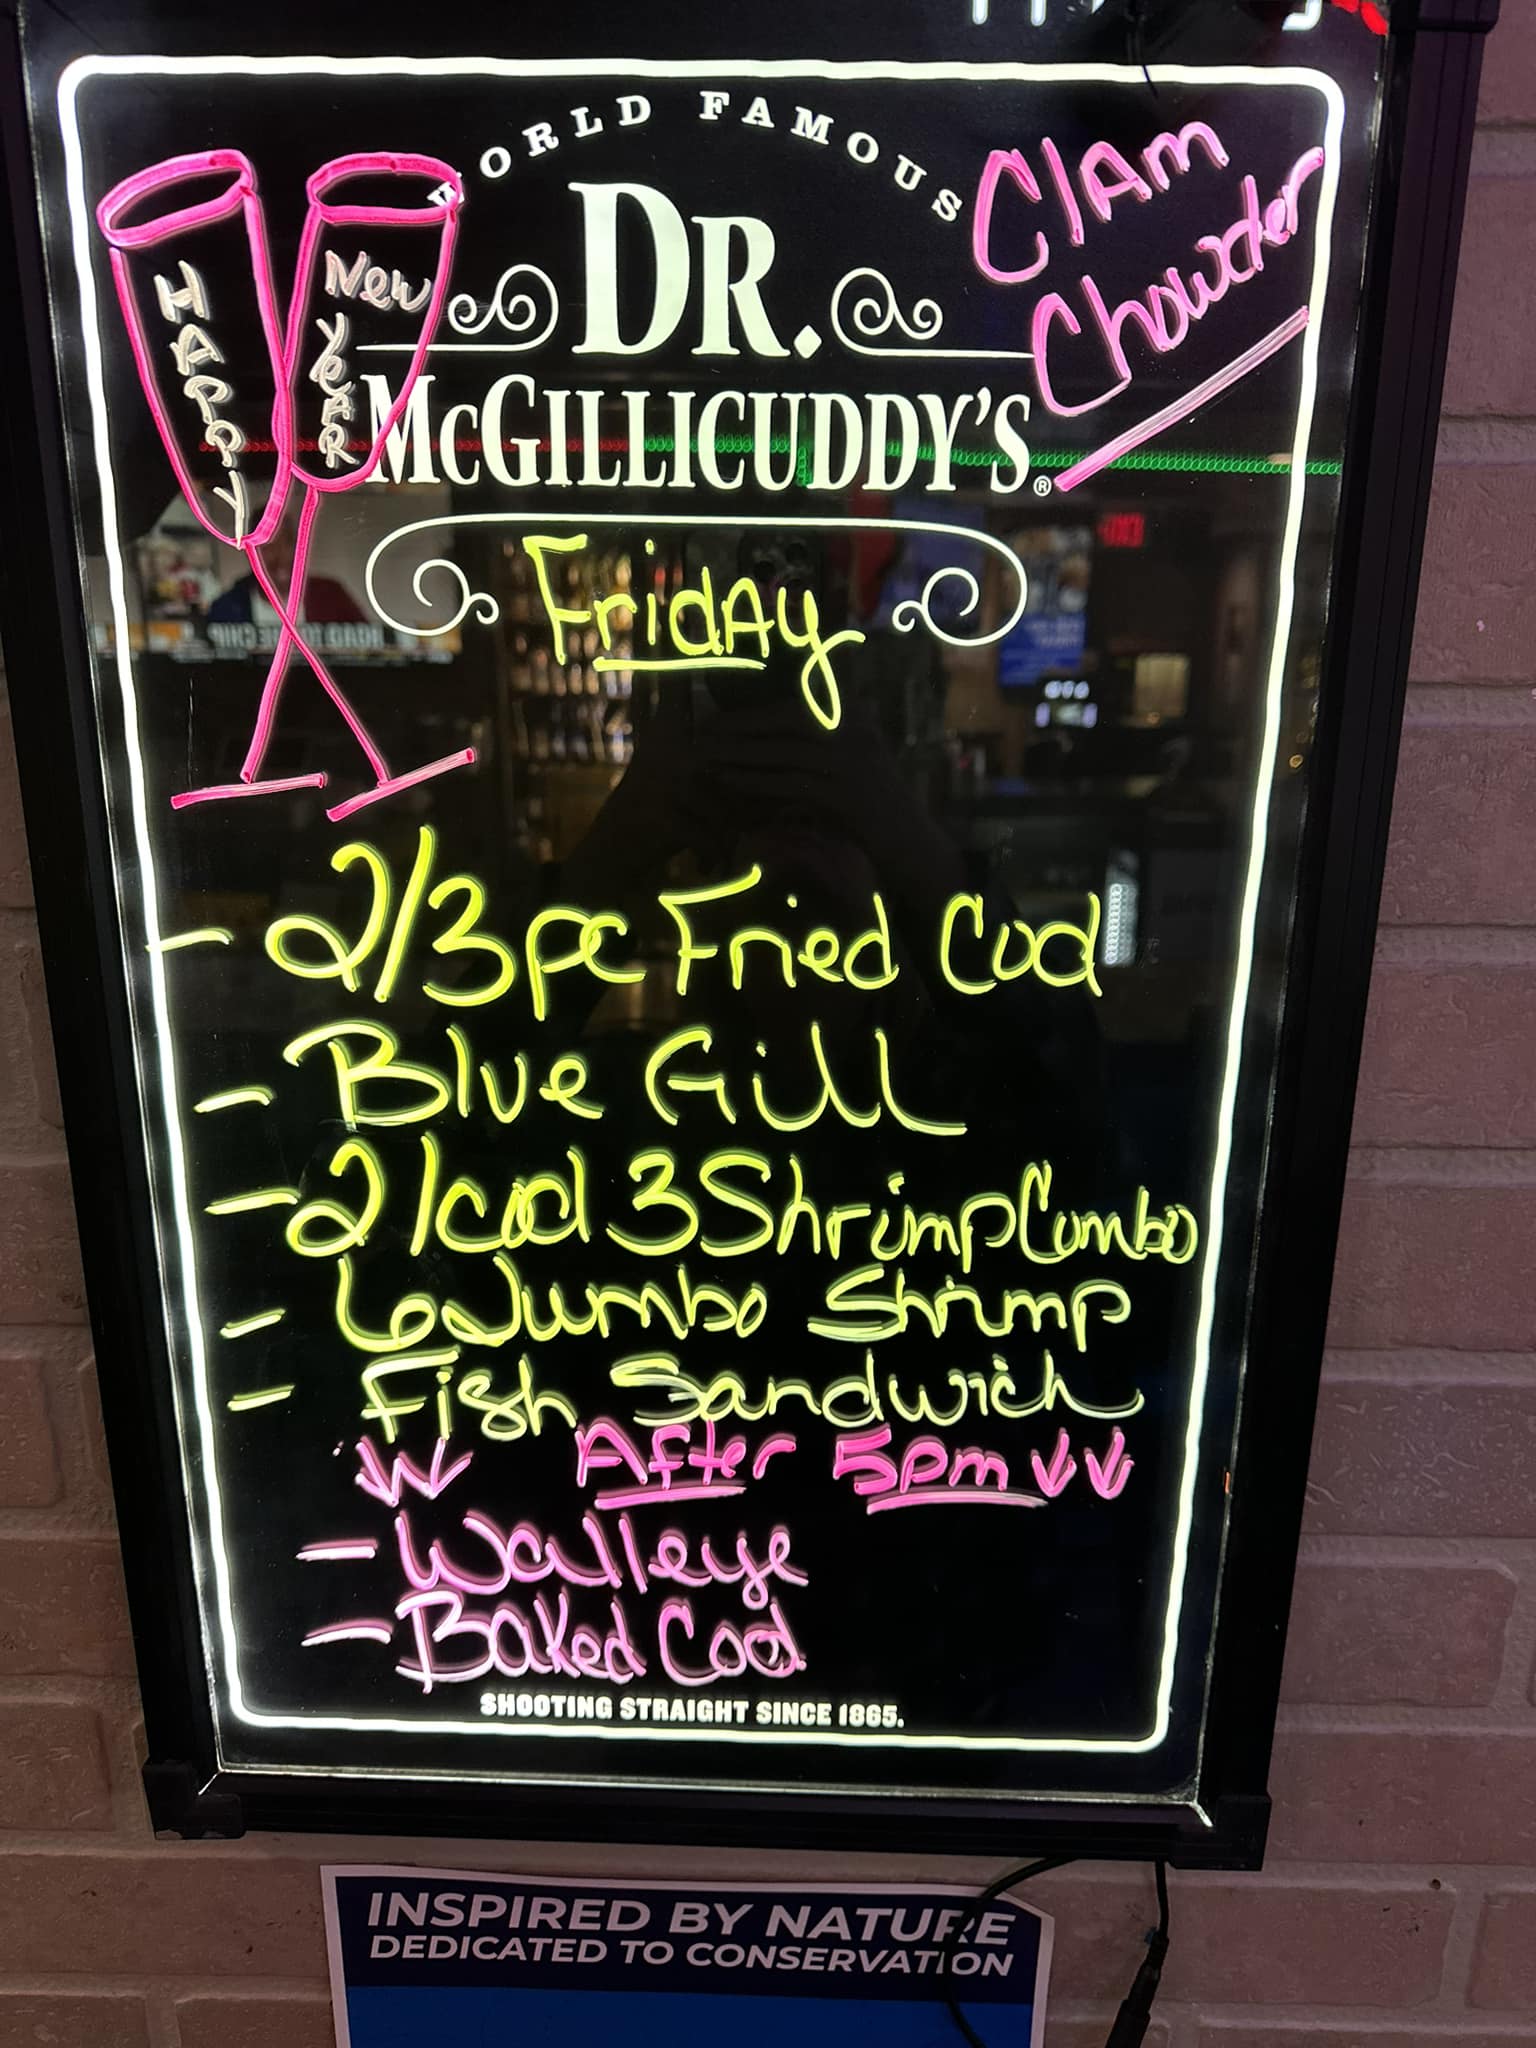 WORLD FAMOUS
DR.
McGILLICUDDY'S®
HAPPY
New
YEAR
Clam
Chowder
Friday
- 2/3pc Fried Cod
- Blue Gill
- 2/cod 3 Shrimp Combo
- 6 Jumbo Shrimp
- Fish Sandwich
↓↓ After 5pm ↓↓
- Walleye
- Baked Cod
SHOOTING STRAIGHT SINCE 1865.
INSPIRED BY NATURE
DEDICATED TO CONSERVATION